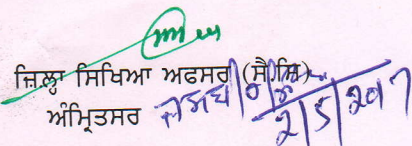 ਜ਼ਿਲ੍ਹਾ ਸਿਖਿਆ ਅਫਸਰ (ਸੈ.ਸਿ)
ਅੰਮ੍ਰਿਤਸਰ
2/5/2017